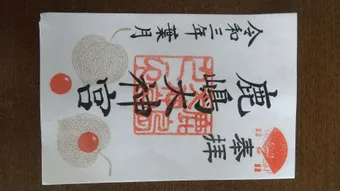 奉拝
鹿嶋大神宮
令和三年葉月